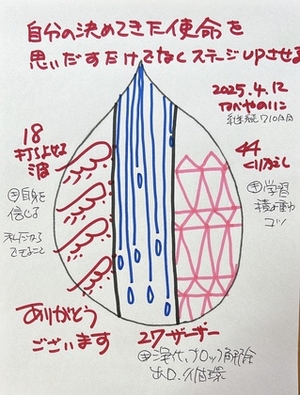 自分の決めてきた使命を
思いだすだけでなくステージUPさせる
2025.4.12
継続710日目
18
打ちよせる
波
自身を
信じる
私だから
できること
44
くりかえし
学習
積み重ね
コツ
ありがとう
ございます
27ザーザー
浄化、ブロック解除
出口、循環